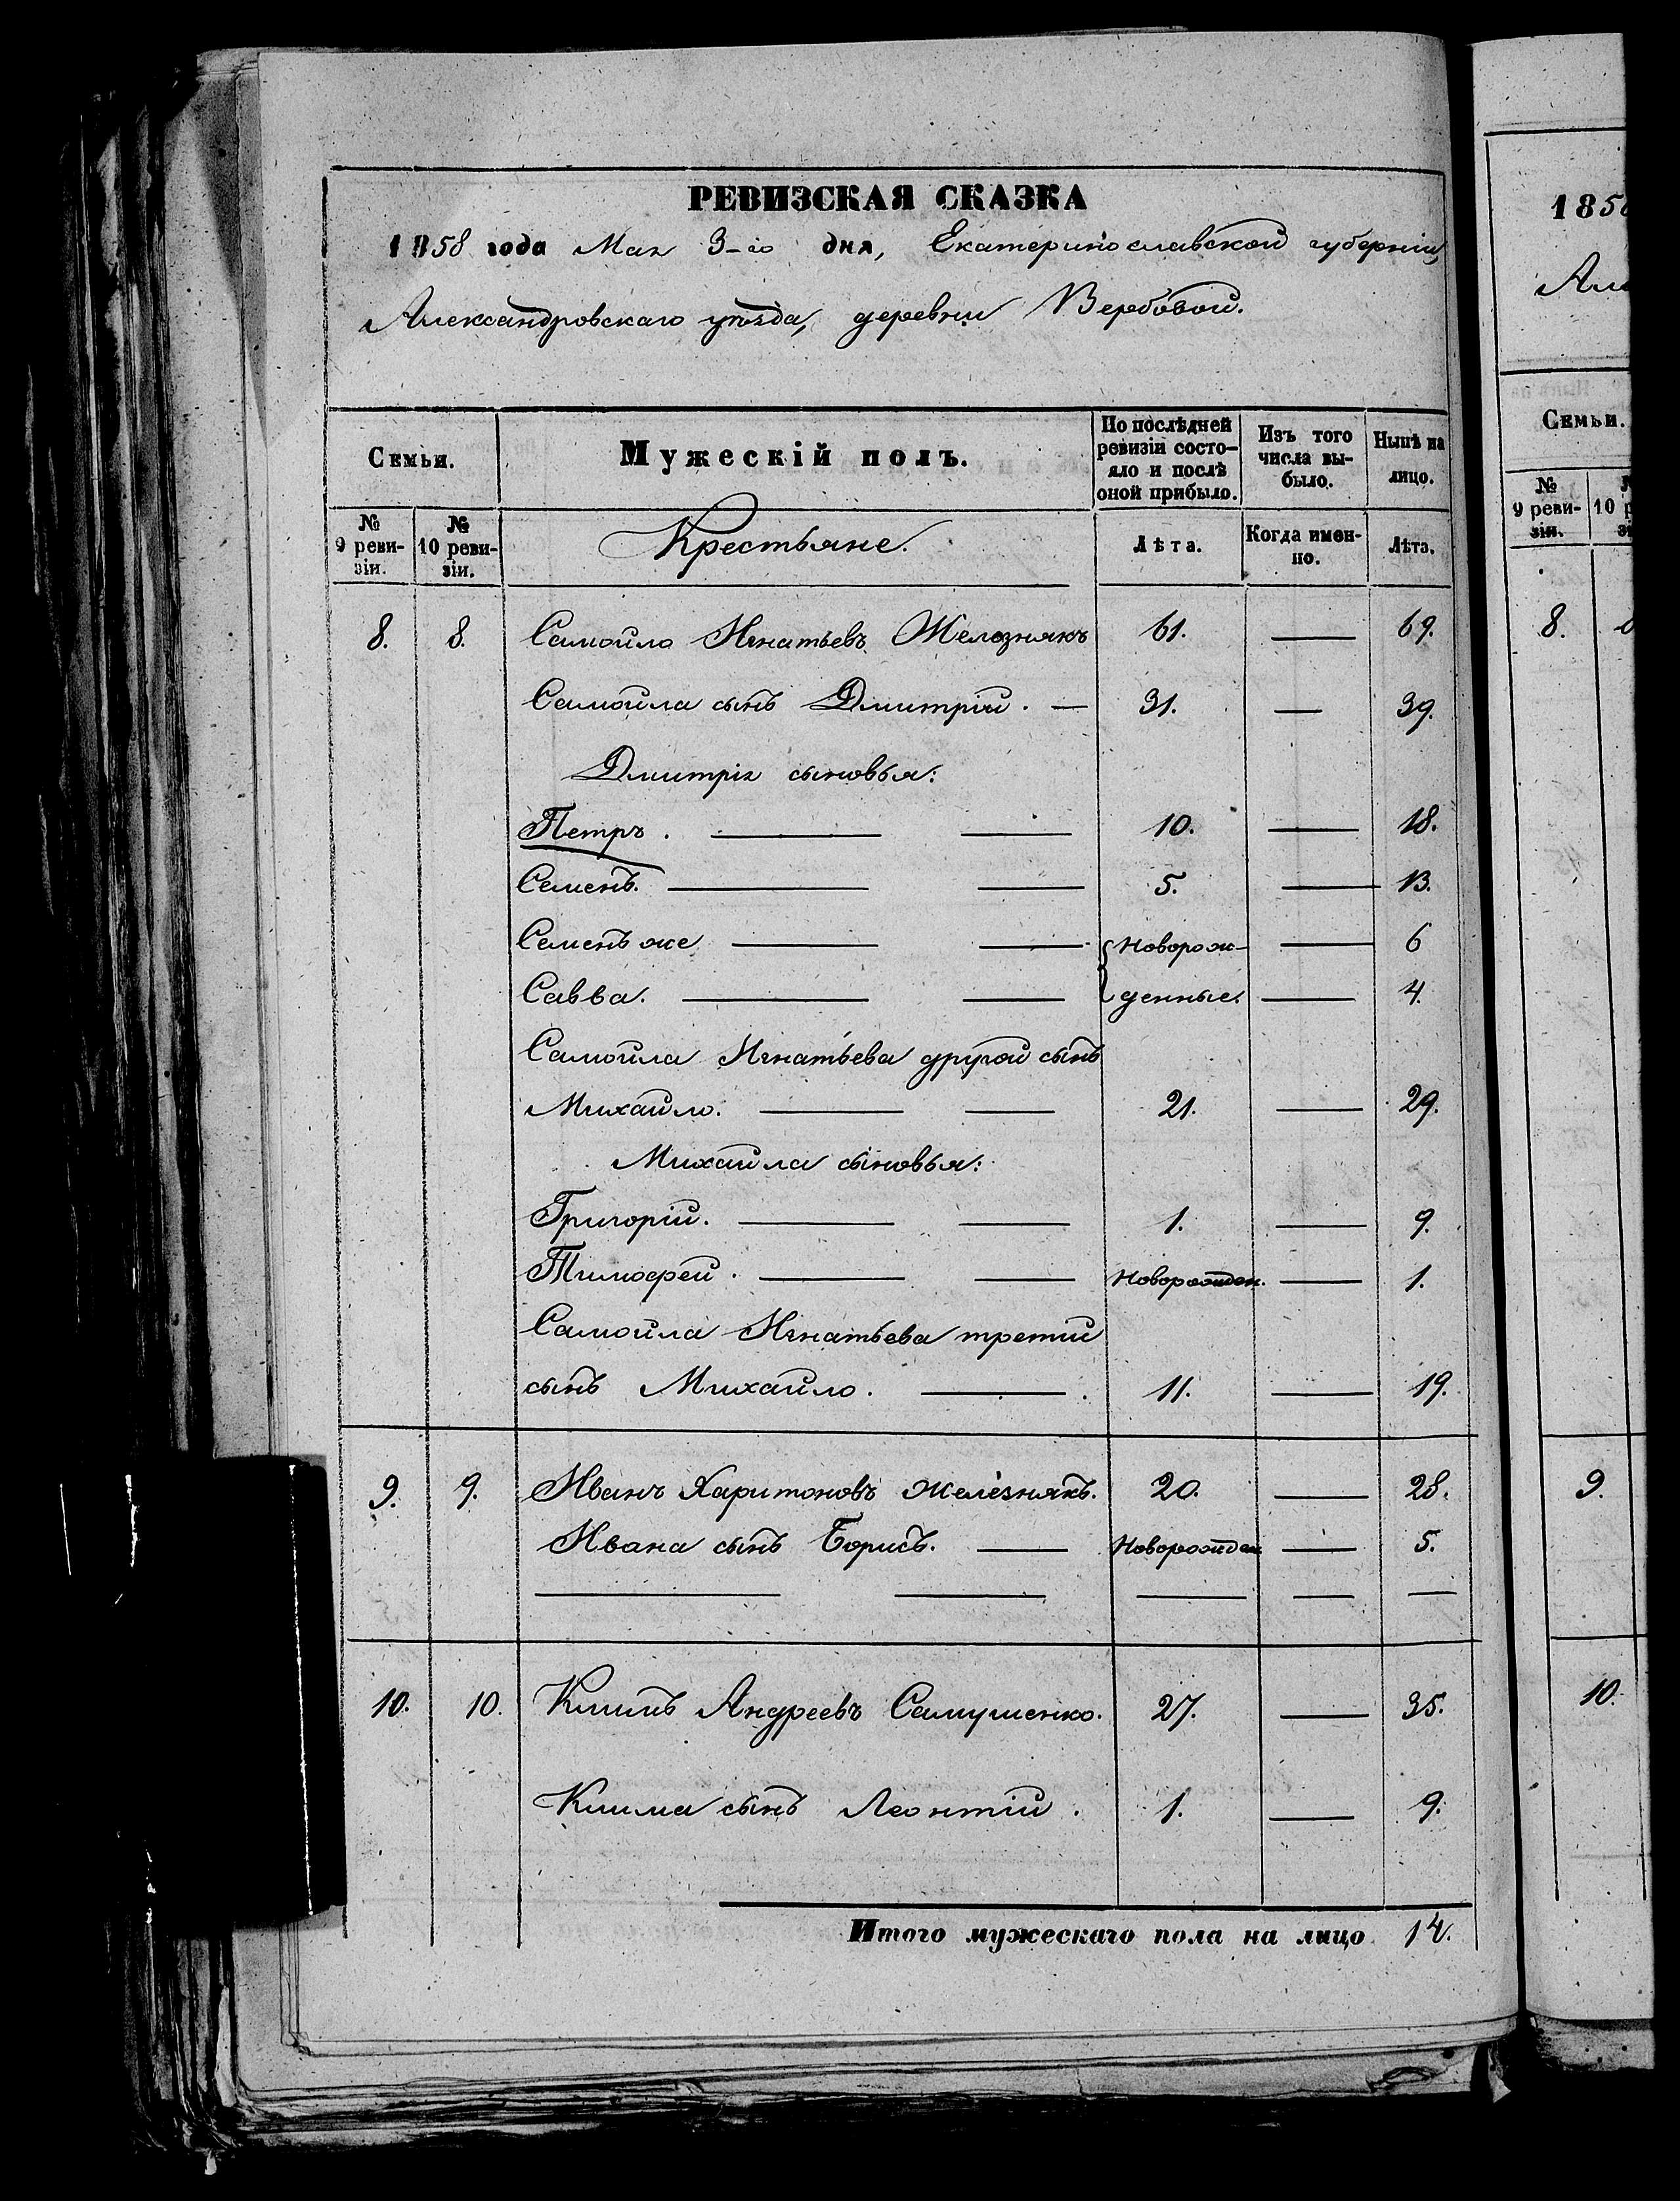 РЕВИЗСКАЯ СКАЗКА
1858 года Мая 3-го дня, Екатеринославской губерніи,
Александровскаго уѣзда, деревни Вербовой.
Семьи.
Мужескій полъ.
По послѣдней ревизіи состояло и послѣ оной прибыло.
Изъ того числа выбыло.
Нынѣ на лицо.
№ 9 ревизіи.
№ 10 ревизіи.
Крестьяне.
Лѣта.
Когда именно.
Лѣта.
8. 8. Самойло Игнатьевъ Железнякъ 61. — 69.
Самойла сынъ Дмитрій. — 31. — 39.
Дмитрія сыновья:
Петръ. — — 10. — 18.
Семенъ. — — 5. — 13.
Семенъ же — — Новорож- — 6
Савва. — — денные. — 4.
Самойла Игнатьева другой сынъ
Михайло. — — 21. — 29.
Михайла сыновья:
Григорій. — — 1. — 9.
Тимофей. — — Новорожден. — 1.
Самойла Игнатьева третій
сынъ Михайло. — 11. — 19.
9. 9. Иванъ Харитоновъ Желѣзнякъ. 20. — 28.
Ивана сынъ Борисъ. — Новорожден — 5.
— — — — —
10. 10. Климъ Андреевъ Самушенко. 27. — 35.
Клима сынъ Леонтій. 1. — 9.
Итого мужескаго пола на лицо 14.
185
Ал
Семьи.
№ 9 ревизіи.
8.
9.
10.